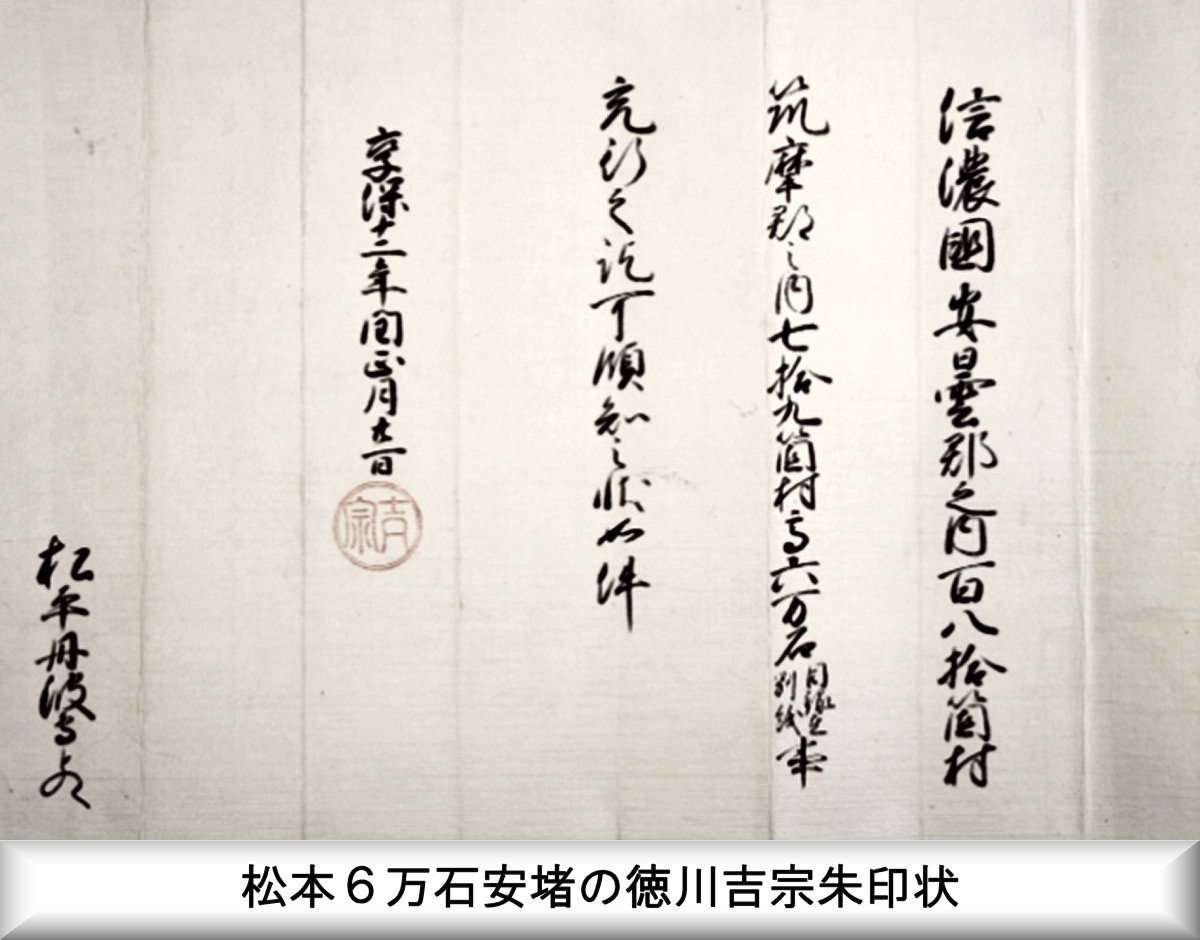 信濃國安曇郡之内百八拾箇村
筑摩郡之内七拾九箇村高六万石目録在別紙事
充行之訖可領知之状如件
享保十二年閏正月廿一日
吉宗
松平丹波守とのへ
松本６万石安堵の徳川吉宗朱印状